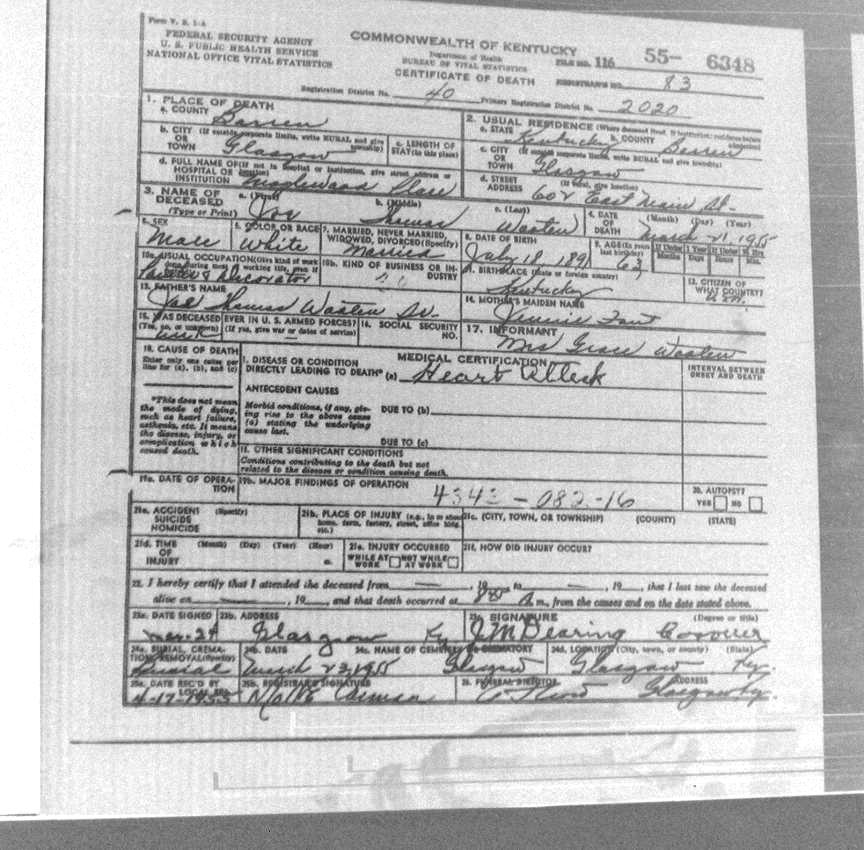 Form V. S. 1-A
FEDERAL SECURITY AGENCY
U. S. PUBLIC HEALTH SERVICE
NATIONAL OFFICE VITAL STATISTICS
COMMONWEALTH OF KENTUCKY
Department of Health
BUREAU OF VITAL STATISTICS
CERTIFICATE OF DEATH
FILE NO. 116 55- 6348
REGISTRAR'S NO. 83
Registration District No. 40 Primary Registration District No. 2020
1. PLACE OF DEATH
a. COUNTY Barren
b. CITY (If outside corporate limits, write RURAL and give township)
OR TOWN Glasgow
c. LENGTH OF STAY (in this place)
d. FULL NAME OF (If not in hospital or institution, give street address or location)
HOSPITAL OR INSTITUTION Maplewood Place
2. USUAL RESIDENCE (Where deceased lived. If institution: residence before admission)
a. STATE Kentucky b. COUNTY Barren
c. CITY (If outside corporate limits, write RURAL and give township)
OR TOWN Glasgow
d. STREET ADDRESS (If rural, give location)
602 East Main St.
3. NAME OF DECEASED (Type or Print)
a. (First) Joe b. (Middle) Thomas c. (Last) Wooten
4. DATE OF DEATH (Month) (Day) (Year)
March 21, 1955
5. SEX Male
6. COLOR OR RACE White
7. MARRIED, NEVER MARRIED, WIDOWED, DIVORCED (Specify) Married
8. DATE OF BIRTH July 18, 1891
9. AGE (In years last birthday) 63
If Under 1 Year Months Days If Under 24 Hrs. Hours Min.
10a. USUAL OCCUPATION (Give kind of work done during most of working life, even if retired)
Painter & Decorator
10b. KIND OF BUSINESS OR INDUSTRY
11. BIRTHPLACE (State or foreign country)
Kentucky
12. CITIZEN OF WHAT COUNTRY?
13. FATHER'S NAME
Joe Thomas Wooten Sr.
14. MOTHER'S MAIDEN NAME
Jennie
15. WAS DECEASED EVER IN U. S. ARMED FORCES?
(Yes, no, or unknown) (If yes, give war or dates of service)
16. SOCIAL SECURITY NO.
17. INFORMANT
Mrs Grace Wooten
18. CAUSE OF DEATH
Enter only one cause per line for (a), (b), and (c)
MEDICAL CERTIFICATION
INTERVAL BETWEEN ONSET AND DEATH
I. DISEASE OR CONDITION
DIRECTLY LEADING TO DEATH* (a) Heart Attack
ANTECEDENT CAUSES
Morbid conditions, if any, giving rise to the above cause (a) stating the underlying cause last.
DUE TO (b)
DUE TO (c)
*This does not mean the mode of dying, such as heart failure, asthenia, etc. It means the disease, injury, or complication which caused death.
II. OTHER SIGNIFICANT CONDITIONS
Conditions contributing to the death but not related to the disease or condition causing death.
19a. DATE OF OPERATION
19b. MAJOR FINDINGS OF OPERATION
4343 - 082-16
20. AUTOPSY?
YES NO
21a. ACCIDENT SUICIDE HOMICIDE (Specify)
21b. PLACE OF INJURY (e.g., in or about home, farm, factory, street, office bldg. etc.)
21c. (CITY, TOWN, OR TOWNSHIP) (COUNTY) (STATE)
21d. TIME OF INJURY (Month) (Day) (Year) (Hour) m.
21e. INJURY OCCURRED
WHILE AT WORK NOT WHILE AT WORK
21f. HOW DID INJURY OCCUR?
22. I hereby certify that I attended the deceased from , 19 to , 19 , that I last saw the deceased
alive on , 19 , and that death occurred at A m., from the causes and on the date stated above.
23a. DATE SIGNED 23b. ADDRESS 23c. SIGNATURE (Degree or title)
Mar-24 Glasgow Ky J M Dearing Coroner
24a. BURIAL, CREMATION, REMOVAL (Specify) 24b. DATE 24c. NAME OF CEMETERY OR CREMATORY 24d. LOCATION (City, town, or county) (State)
Burial March 23, 1955 Glasgow Glasgow Ky.
25a. DATE REC'D BY LOCAL REG. 25b. REGISTRAR'S SIGNATURE 26. FUNERAL DIRECTOR ADDRESS
4-17-1955 Glasgow Ky.